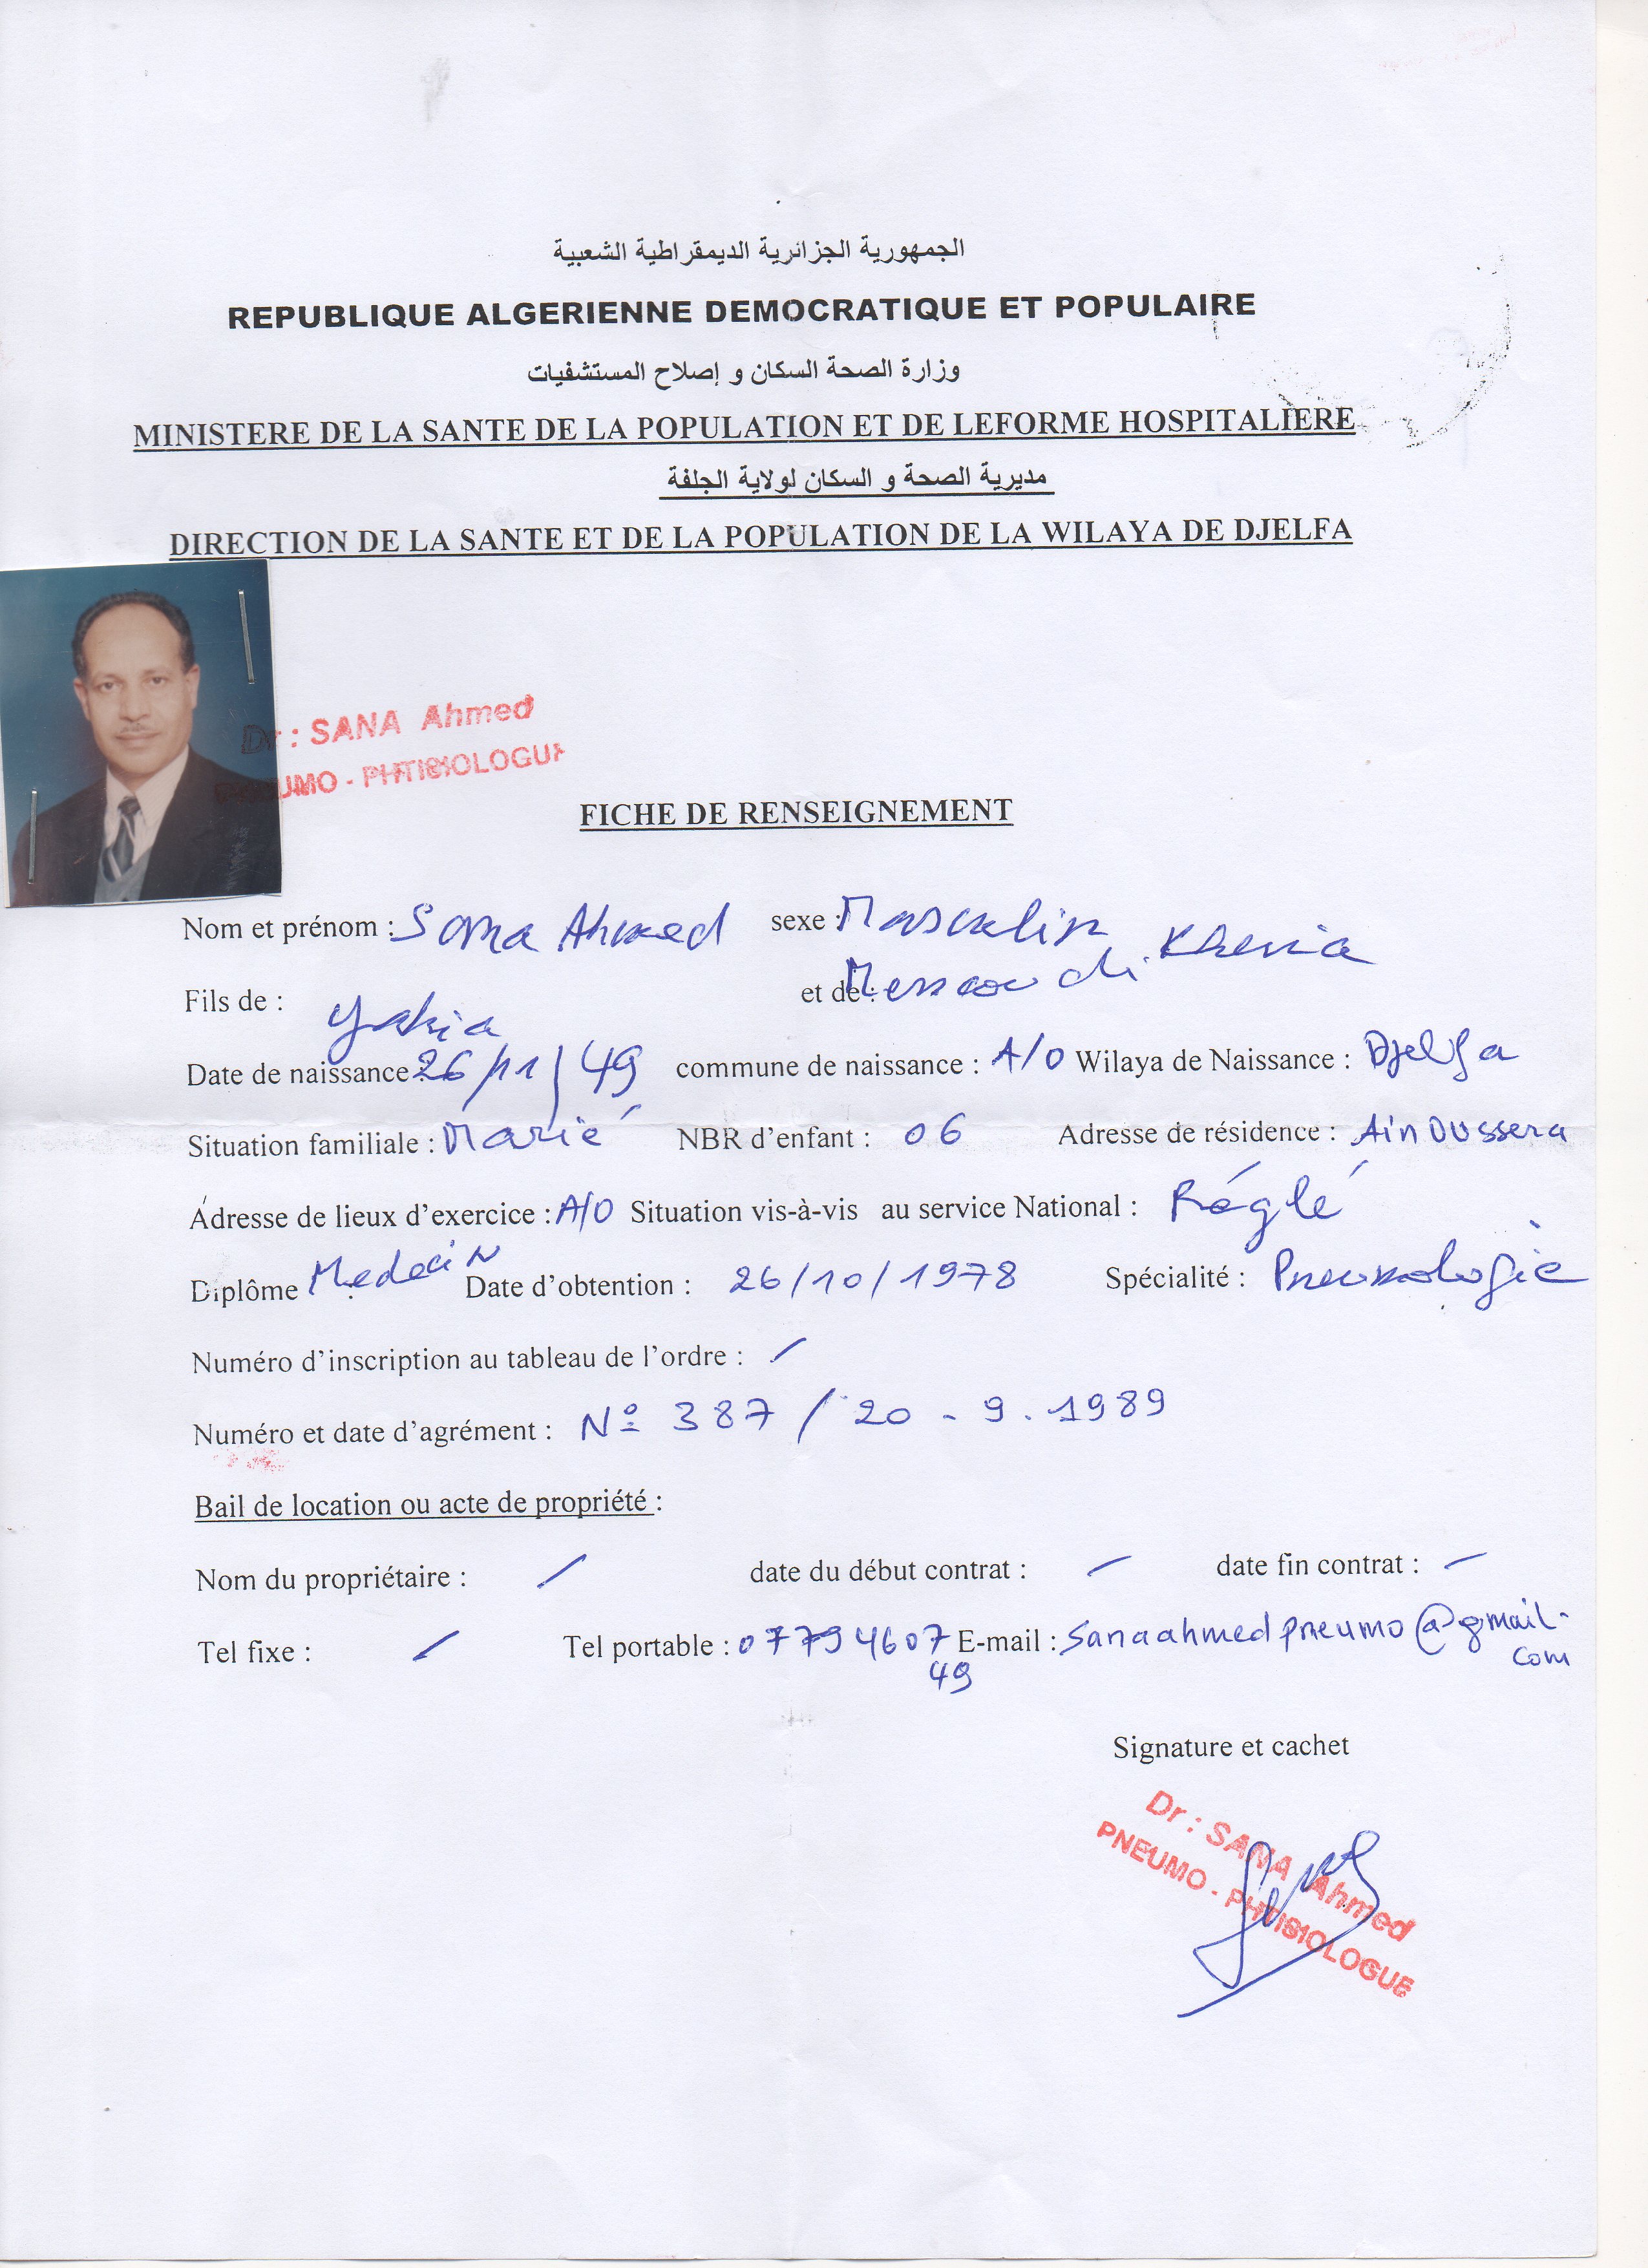 الجمهورية الجزائرية الديمقراطية الشعبية
REPUBLIQUE ALGERIENNE DEMOCRATIQUE ET POPULAIRE
وزارة الصحة السكان و إصلاح المستشفيات
MINISTERE DE LA SANTE DE LA POPULATION ET DE LEFORME HOSPITALIERE
مديرية الصحة و السكان لولاية الجلفة
DIRECTION DE LA SANTE ET DE LA POPULATION DE LA WILAYA DE DJELFA
Dr : SANA Ahmed
PNEUMO - PHTISIOLOGUE
FICHE DE RENSEIGNEMENT
Nom et prénom : Sana Ahmed sexe : Masculin
Fils de : Yahia et de : Messaoudi
Date de naissance : 26/11/49 commune de naissance : A/O Wilaya de Naissance : Djelfa
Situation familiale : Marié NBR d'enfant : 06 Adresse de résidence : Ain Oussera
Adresse de lieux d'exercice : A/O Situation vis-à-vis au service National : Réglé
Diplôme Medecin Date d'obtention : 26/10/1978 Spécialité : Pneumologie
Numéro d'inscription au tableau de l'ordre : /
Numéro et date d'agrément : Nº 387 / 20 - 9 . 1989
Bail de location ou acte de propriété :
Nom du propriétaire : / date du début contrat : / date fin contrat : /
Tel fixe : / Tel portable : 0779460749 E-mail : sanaahmedpneumo@gmail.com
Signature et cachet
Dr : SANA Ahmed
PNEUMO - PHTISIOLOGUE